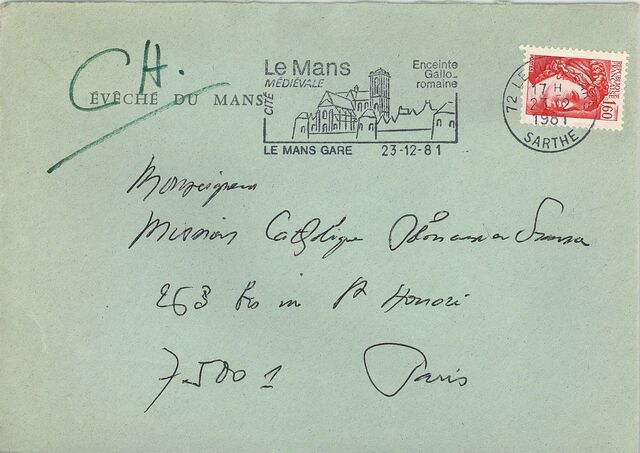 CH.
ÉVÊCHÉ DU MANS
Le Mans
CITÉ MÉDIÉVALE
Enceinte
Gallo-
romaine
LE MANS GARE 23-12-81
72 LE MANS
17 H
23-12
1981
SARTHE
RÉPUBLIQUE
FRANÇAISE
1,60
Monseigneur
Mission Catholique
263 bis St Honoré
75001 Paris